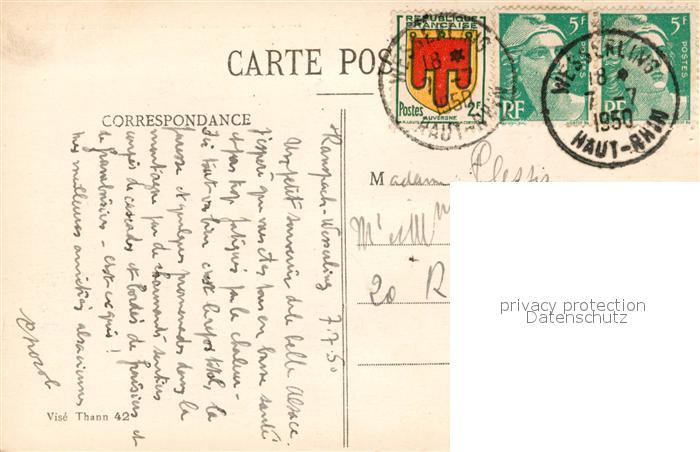 CARTE POS
RÉPUBLIQUE FRANÇAISE
Postes 2F
AUVERGNE
5F
POSTES
RF
5F
POSTES
RF
WESSERLING
18 *
7-7
1950
HAUT-RHIN
WESSERLING
18 *
7 7
1950
HAUT-RHIN
CORRESPONDANCE
Ranspach-Wesserling 7.7.50
Un petit souvenir de la belle Alsace.
J'espère que vous êtes tous en bonne santé
et pas trop fatigués par la chaleur-
Ici tout va bien c'est le repos total, la
paresse et quelques promenades dans la
montagne par de charmants sentiers
de cascades et bordés de fraisiers et
de framboisiers - c'est exquis!
mes meilleures amitiés alsaciennes
Madame Plessis
M et M
20 R
privacy protection
Datenschutz
Visé Thann 42